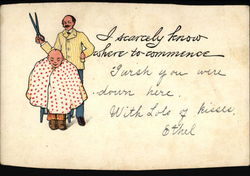 I scarcely know
where to commence
I wish you were
down here.
With Lols of kisses,
Ethel